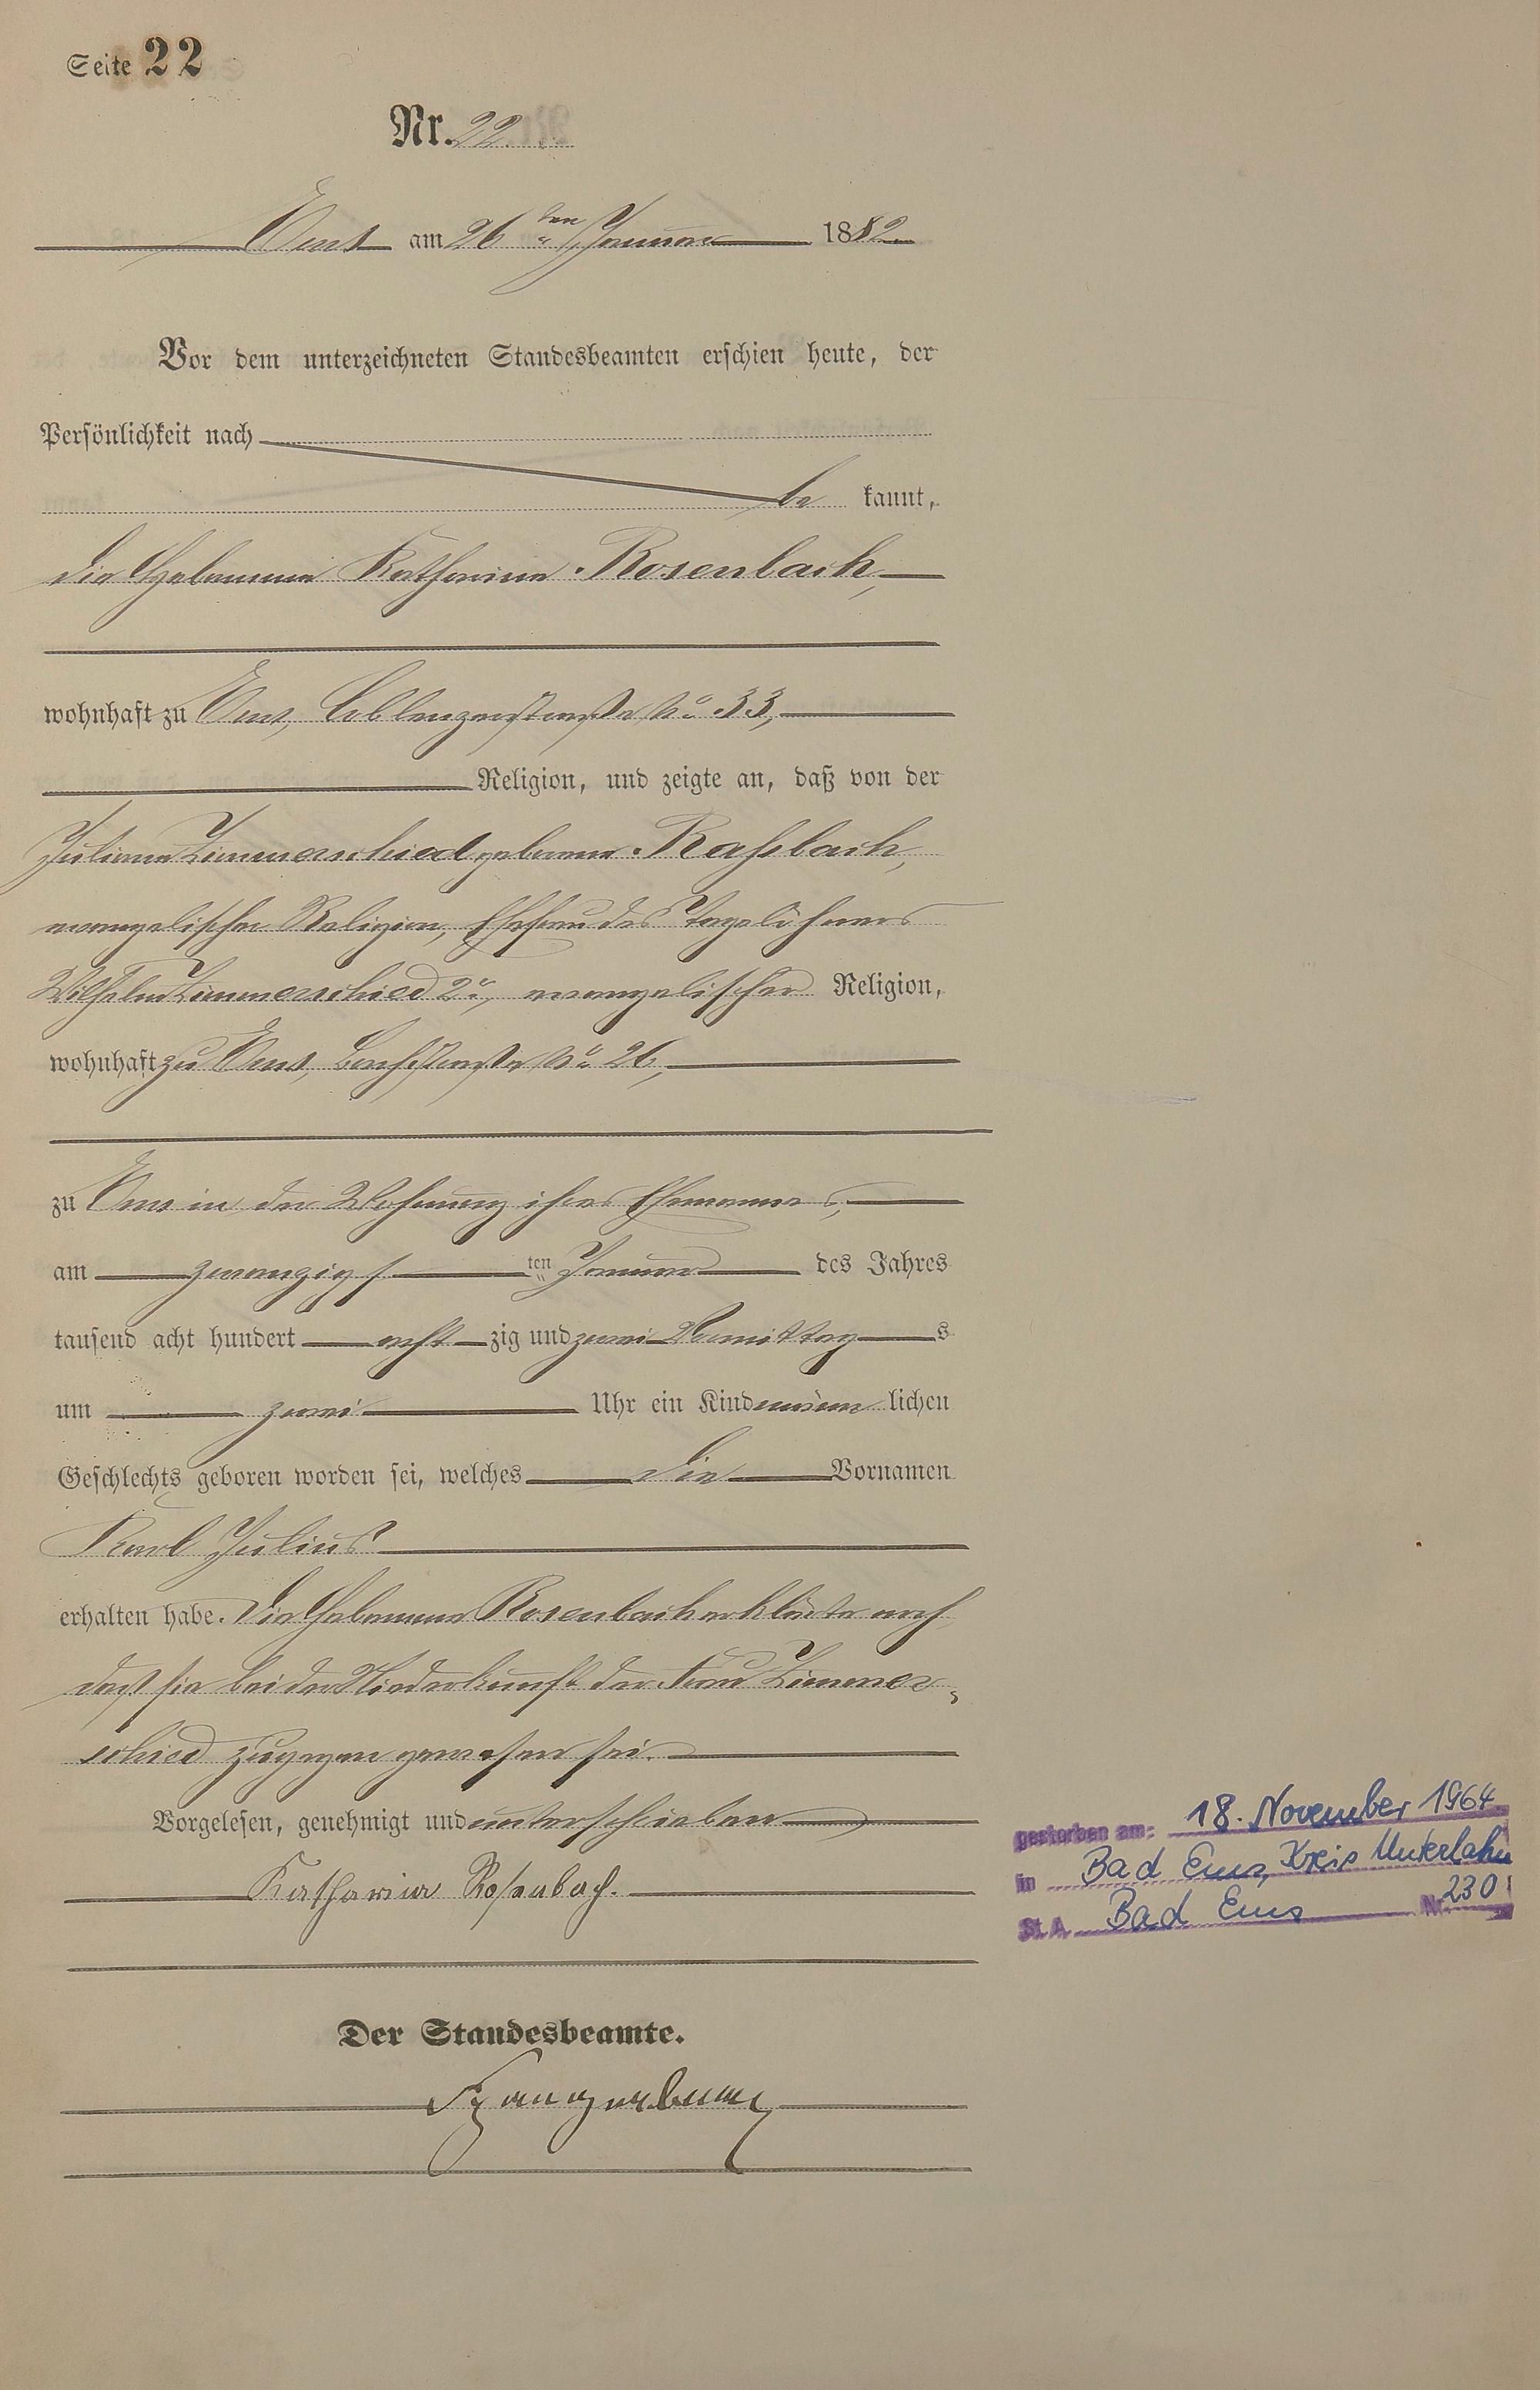 Seite 22
Nr. 22.
Ems am 26 ten Januar 1882
Vor dem unterzeichneten Standesbeamten erschien heute, der
Persönlichkeit nach
be kannt,
die Hebamme Katharina Rosenbach,
wohnhaft zu Ems, Coblenzerstraße No 33,
Religion, und zeigte an, daß von der
Juliane Zimmerschied geborene Raßbach,
evangelischer Religion, Ehefrau des Tagelöhners
Wilhelm Zimmerschied 2r, evangelischer Religion,
wohnhaft zu Ems, Bachstraße No 26,
zu Ems in der Wohnung ihres Ehemannes,
am zwanzigs ten Januar des Jahres
tausend acht hundert acht zig und zwei Vormittag s
um zwei Uhr ein Kind männ lichen
Geschlechts geboren worden sei, welches die Vornamen
Karl Julius
erhalten habe. Die Hebamme Rosenbach erklärte noch
daß sie bei der Niederkunft der Frau Zimmer-
schied zugegen gewesen sei.
Vorgelesen, genehmigt und unterschrieben
Katharina Rosenbach.
gestorben am: 18. November 1964
in Bad Ems, Kreis Unterlahn
St. A. Bad Ems Nr. 230
Der Standesbeamte.
Spangenberg